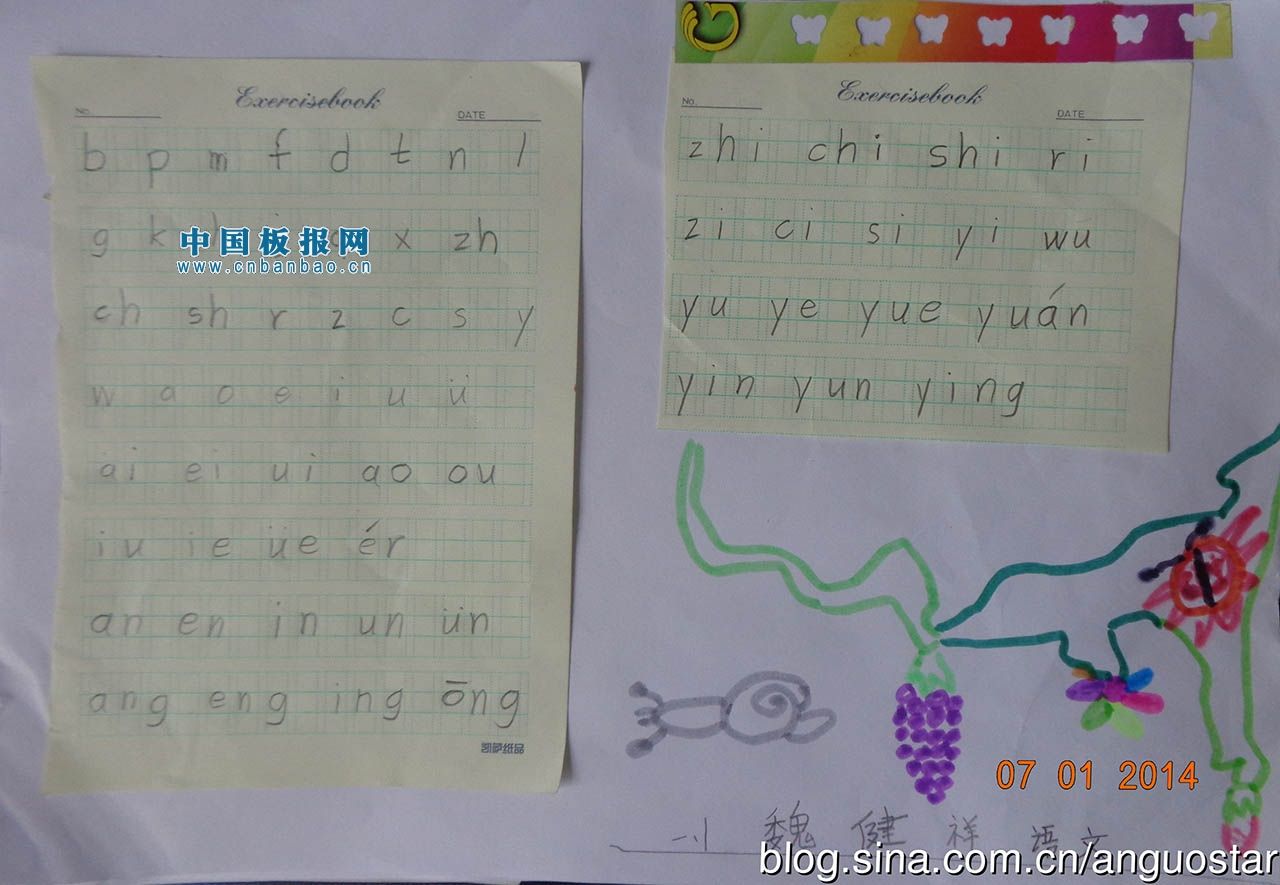 Exercisebook
No.
DATE
b p m f d t n l
g k x zh
中国板报网
www.cnbanbao.cn
ch sh r z c s y
w a o e i u ü
ai ei ui ao ou
iu ie üe ér
an en in un ün
ang eng ing ōng
凯萨纸品
Exercisebook
No.
DATE
zhi chi shi ri
zi ci si yi wu
yu ye yue yuán
yin yun ying
07 01 2014
一小 魏健祥 语文
blog.sina.com.cn/anguostar